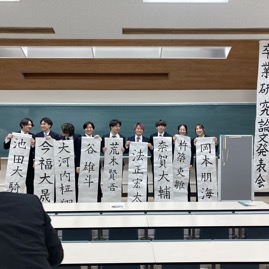 卒業研究論文発表会
岡本朋海
奈賀大輔
法正宏太
荒木賢吾
谷雄斗
大河内柾
今福大晟
池田大騎